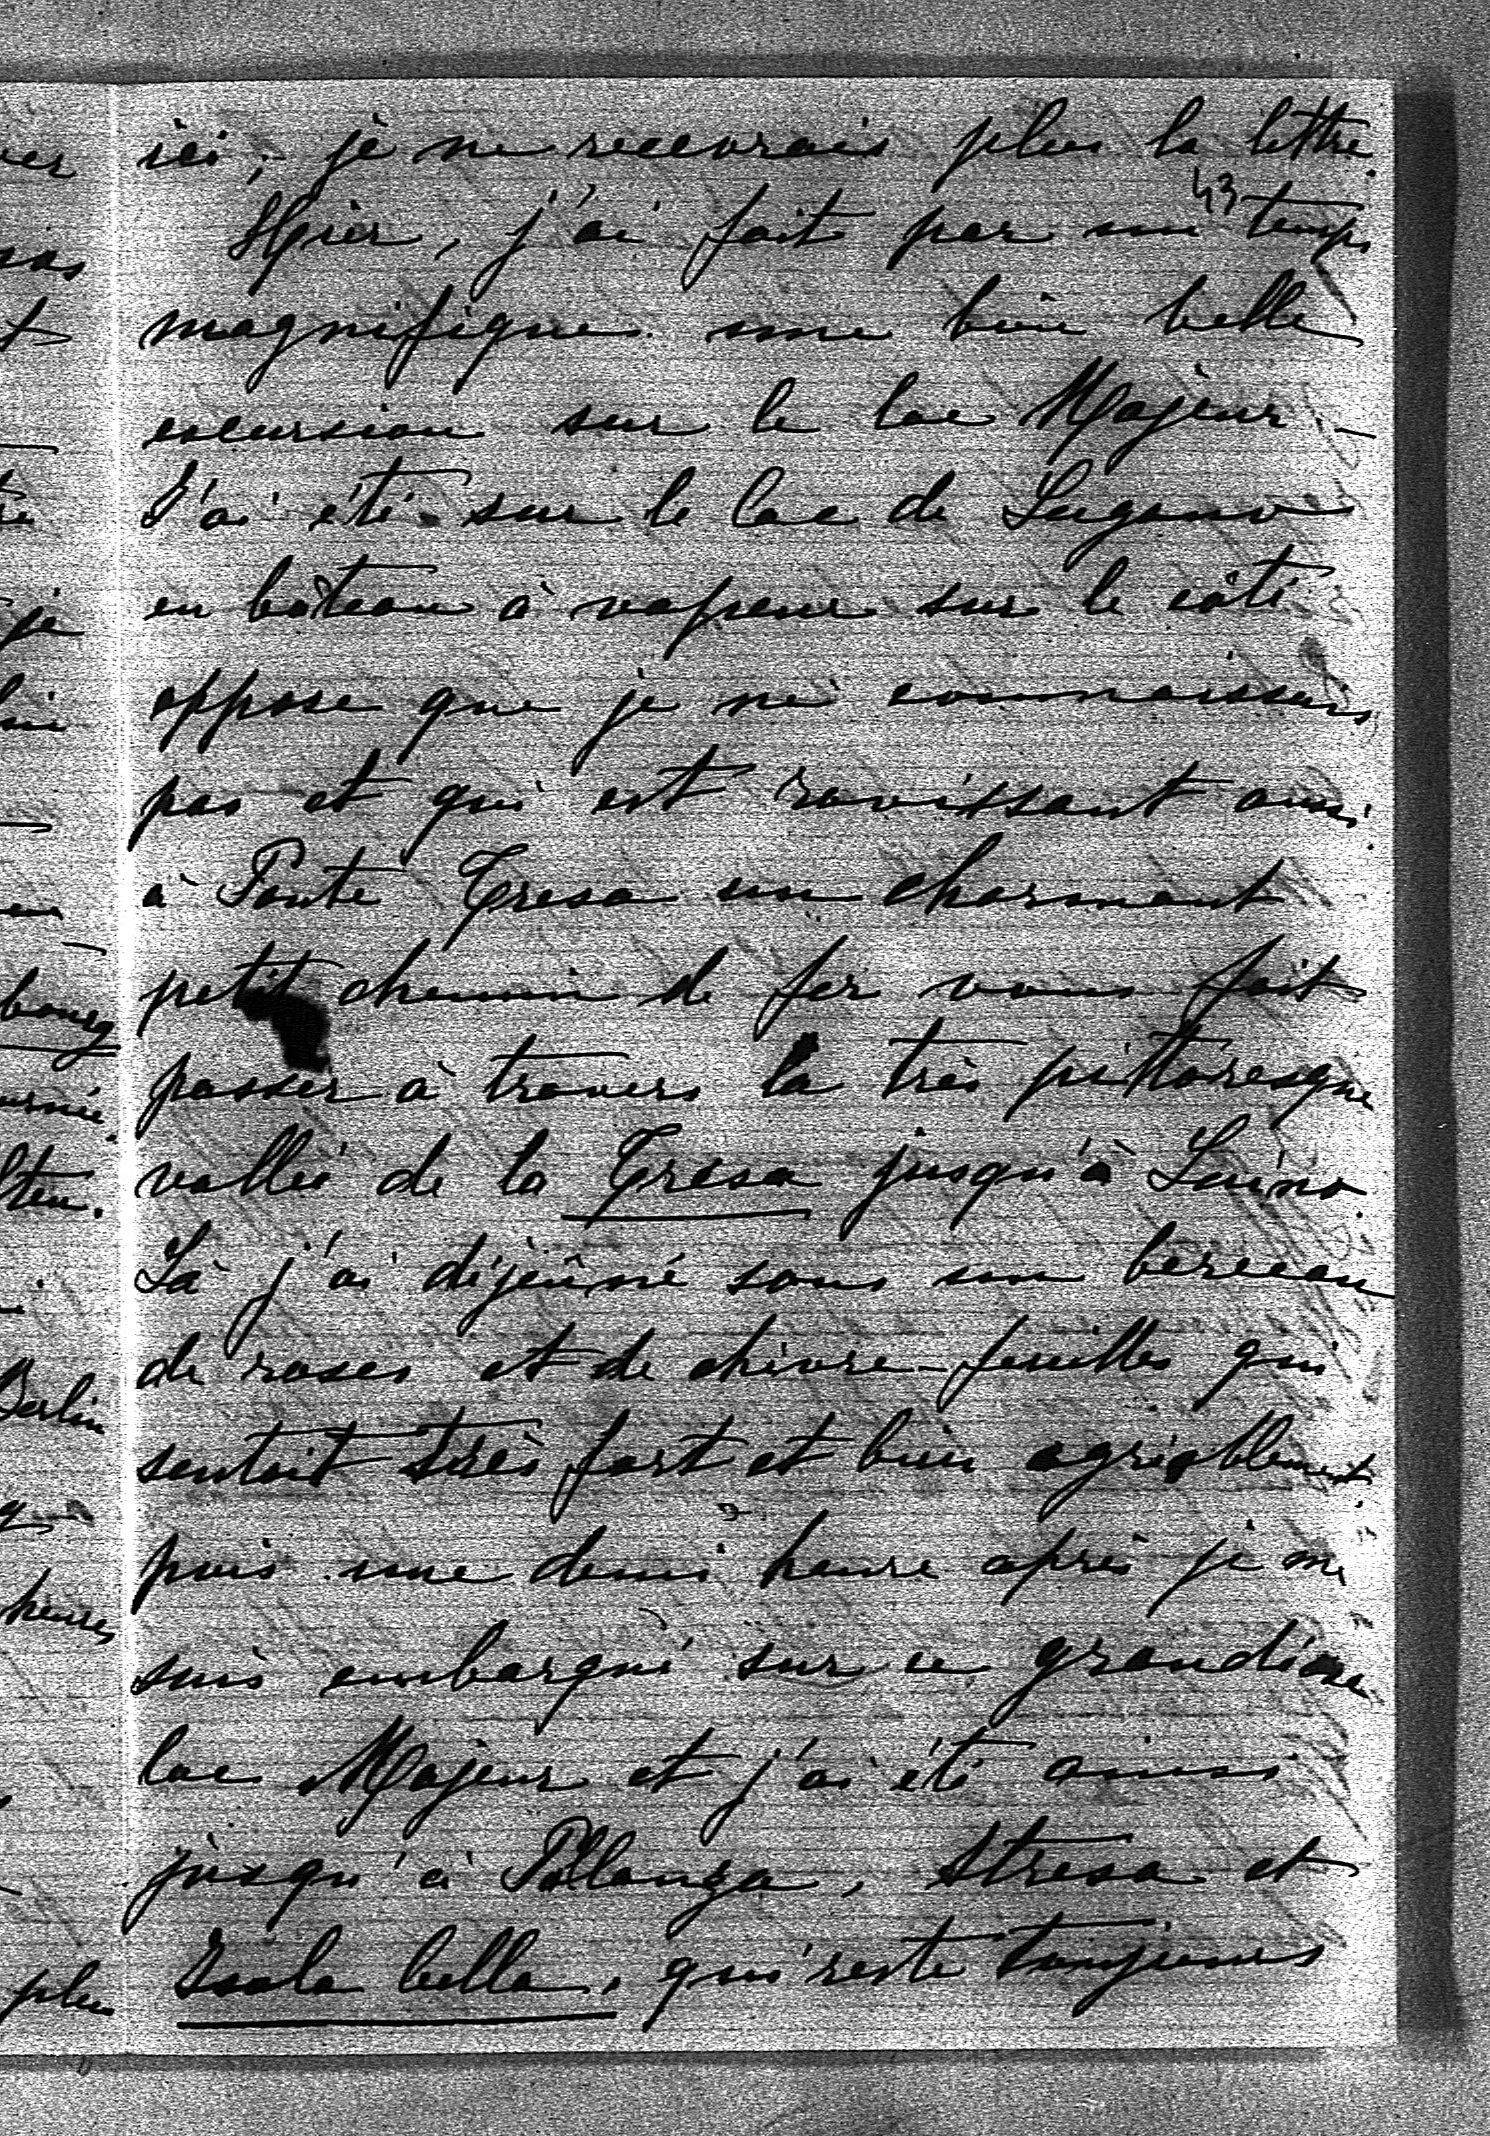 ici, je ne recevrais plus la lettre.
43
Hier, j'ai fait par un temps
magnifique une bien belle
excursion sur le lac Majeur. –
J'ai été sur le lac de Lugano
en bâteau à vapeur sur le côté
opposé que je ne connaissais
pas et qui est ravissant aussi.
à Ponte Tresa un charmant
petit chemin de fer vous fait
passer à travers la très pittoresque
vallée de la Tresa jusqu'à Luino.
Là j'ai déjeûné sous un berceau
de roses et de chèvre-feuilles qui
sentait très fort et bien agréablement
puis une demi heure après je me
suis embarqué sur ce grandiose
lac Majeur et j'ai été ainsi
jusqu'à Pallanza, Stresa et
Isola bella, qui reste toujours